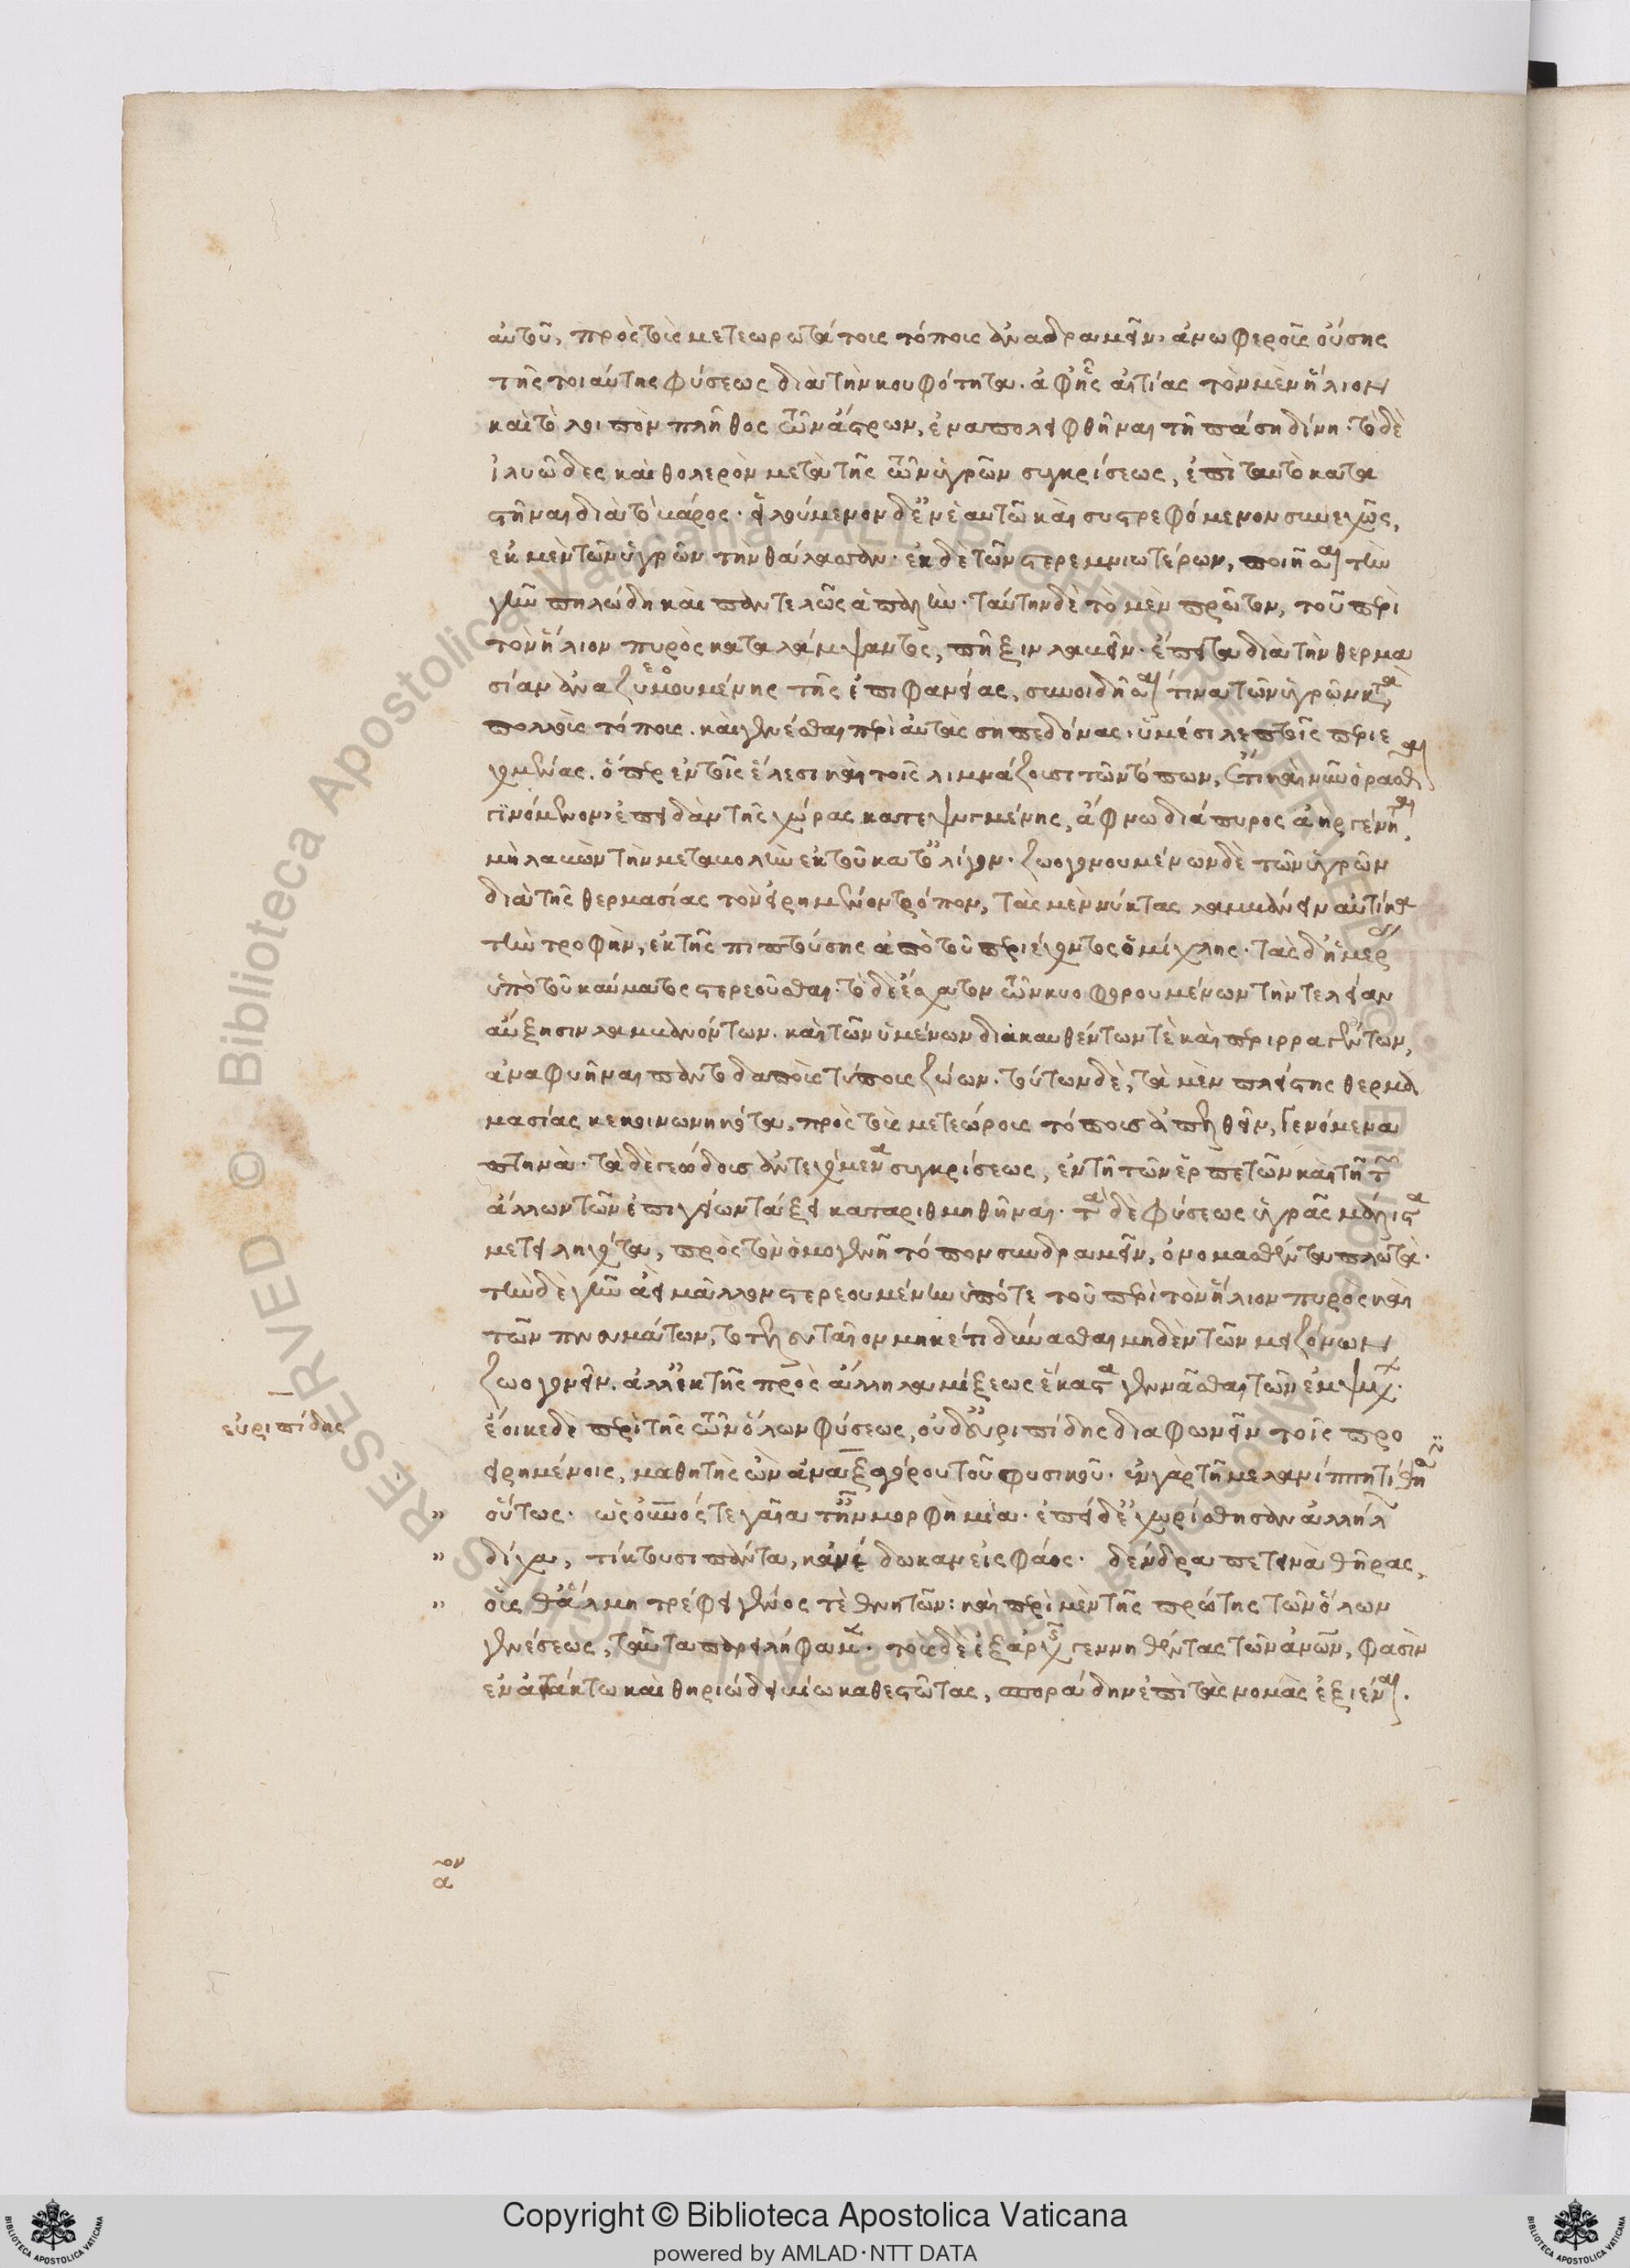 αὐτοῦ, πρὸς τοὺς μετεωροτάτοις τόποις ἀναδραμεῖν· ἀνωφεροῦς οὔσης
τῆς τοιαύτης φύσεως διὰ τὴν κουφότητα. ἀφ' ἧς αἰτίας τὸν μὲν ἥλιον
καὶ τὸ λοιπὸν πλῆθος τῶν ἄστρων, ἐναποληφθῆναι τῇ πάσῃ δίνῃ. τὸ δὲ
ἰλυῶδες καὶ θολερὸν μετὰ τῆς τῶν ὑγρῶν συγκρίσεως, ἐπὶ ταυτὸ κατα
στῆναι διὰ τὸ βάρος. εἰλούμενον δ' ἐν ἑαυτῷ καὶ συστρεφόμενον συνεχῶς,
ἐκ μὲν τῶν ὑγρῶν τὴν θάλασσαν. ἐκ δὲ τῶν στερεμνιωτέρων, ποιῆσαι τὴν
γῆν πηλώδη καὶ παντελῶς ἁπαλήν. ταύτην δὲ τὸ μὲν πρῶτον, τοῦ περὶ
τὸν ἥλιον πυρὸς καταλάμψαντος, πῆξιν λαβεῖν. ἔπειτα διὰ τὴν θερμα
σίαν ἀναζυμουμένης τῆς ἐπιφανείας, συνοιδῆσαί τινα τῶν ὑγρῶν κατὰ
πολλοὺς τόπους. καὶ γενέσθαι περὶ αὐτὰς σηπεδόνας ὑμέσι λεπτοῖς περιε
χομένας. ὅπερ ἐν τοῖς ἕλεσι καὶ τοῖς λιμνάζουσι τῶν τόπων, ἔτι καὶ νῦν ὁρᾶσθαι
γινόμενον, ἐπειδὰν τῆς χώρας κατεψυγμένης, ἄφνω διάπυρος ἀὴρ γένηται
μὴ λαβὼν τὴν μεταβολὴν ἐκ τοῦ κατ' ὀλίγον. ζωογονουμένων δὲ τῶν ὑγρῶν
διὰ τῆς θερμασίας τὸν εἰρημένον τρόπον, τὰς μὲν νύκτας λαμβάνειν αὐτίκα
τὴν τροφὴν, ἐκ τῆς πιπτούσης ἀπὸ τοῦ περιέχοντος ὀμίχλης. τὰς δ' ἡμέρας
ὑπὸ τοῦ καύματος στερεοῦσθαι. τὸ δὲ ἔσχατον τῶν κυοφορουμένων τὴν τελείαν
αὔξησιν λαμβανόντων. καὶ τῶν ὑμένων διακαυθέντων τὲ καὶ περιρραγέντων,
ἀναφυῆναι παντοδαποὺς τύπους ζώων. τούτων δὲ, τὰ μὲν πλείστης θερμα
μασίας κεκοινωνηκότα, πρὸς τοὺς μετεώροις τόποισ ἀπελθεῖν, γενόμενα
πτηνά. τὰ δὲ γεώδους ἀντεχόμενα συγκρίσεως, ἐν τῇ τῶν ἑρπετῶν καὶ τῇ τῶν
ἄλλων τῶν ἐπιγείων τάξει καταριθμηθῆναι. τὰ δὲ φύσεως ὑγρᾶς μάλιστα
μετειληφότα, πρὸς τὸν ὁμογενῆ τόπον συνδραμεῖν, ὀνομασθέντα πλωτά.
τὴν δὲ γῆν ἀεὶ μᾶλλον στερεουμένην ὑπό τε τοῦ περὶ τὸν ἥλιον πυρὸς καὶ
τῶν πνευμάτων, τὸ τελευταῖον μηκέτι δύνασθαι μηδὲν τῶν μειζόνων
ζωογονεῖν. ἀλλ' ἐκ τῆς πρὸς ἄλληλα μίξεως ἕκαστα γεννᾶσθαι τῶν ἐμψύχων.
εὐριπίδης
ἔοικε δὲ περὶ τῆς τῶν ὅλων φύσεως, οὐδ' εὐριπίδης διαφωνεῖν τοῖς προ
ειρημένοις, μαθητὴς ὢν ἀναξαγόρου τοῦ φυσικοῦ. ἐν γὰρ τῇ μελανίππῃ τίθησιν
" οὕτως. ὡς οὐρανός τε γαῖα τ' ἦν μορφὴ μία. ἐπεὶ δ' ἐχωρίσθησαν ἀλλήλων
" δίχα, τίκτουσι πάντα, κἀνέδωκαν εἰς φάος. δένδρα πετεινὰ θῆρας,
" οὓς θ' ἅλμη τρέφει γένος τὲ θνητῶν: καὶ περὶ μὲν τῆς πρώτης τῶν ὅλων
γενέσεως, ταῦτα παρειλήφαμεν. τοὺς δὲ ἐξ ἀρχῆς γεννηθέντας τῶν ἀνθρώπων, φασὶν
ἐν ἀτάκτω καὶ θηριώδει βίω καθεστῶτας, σποράδην ἐπὶ τὰς νομὰς ἐξιέναι.